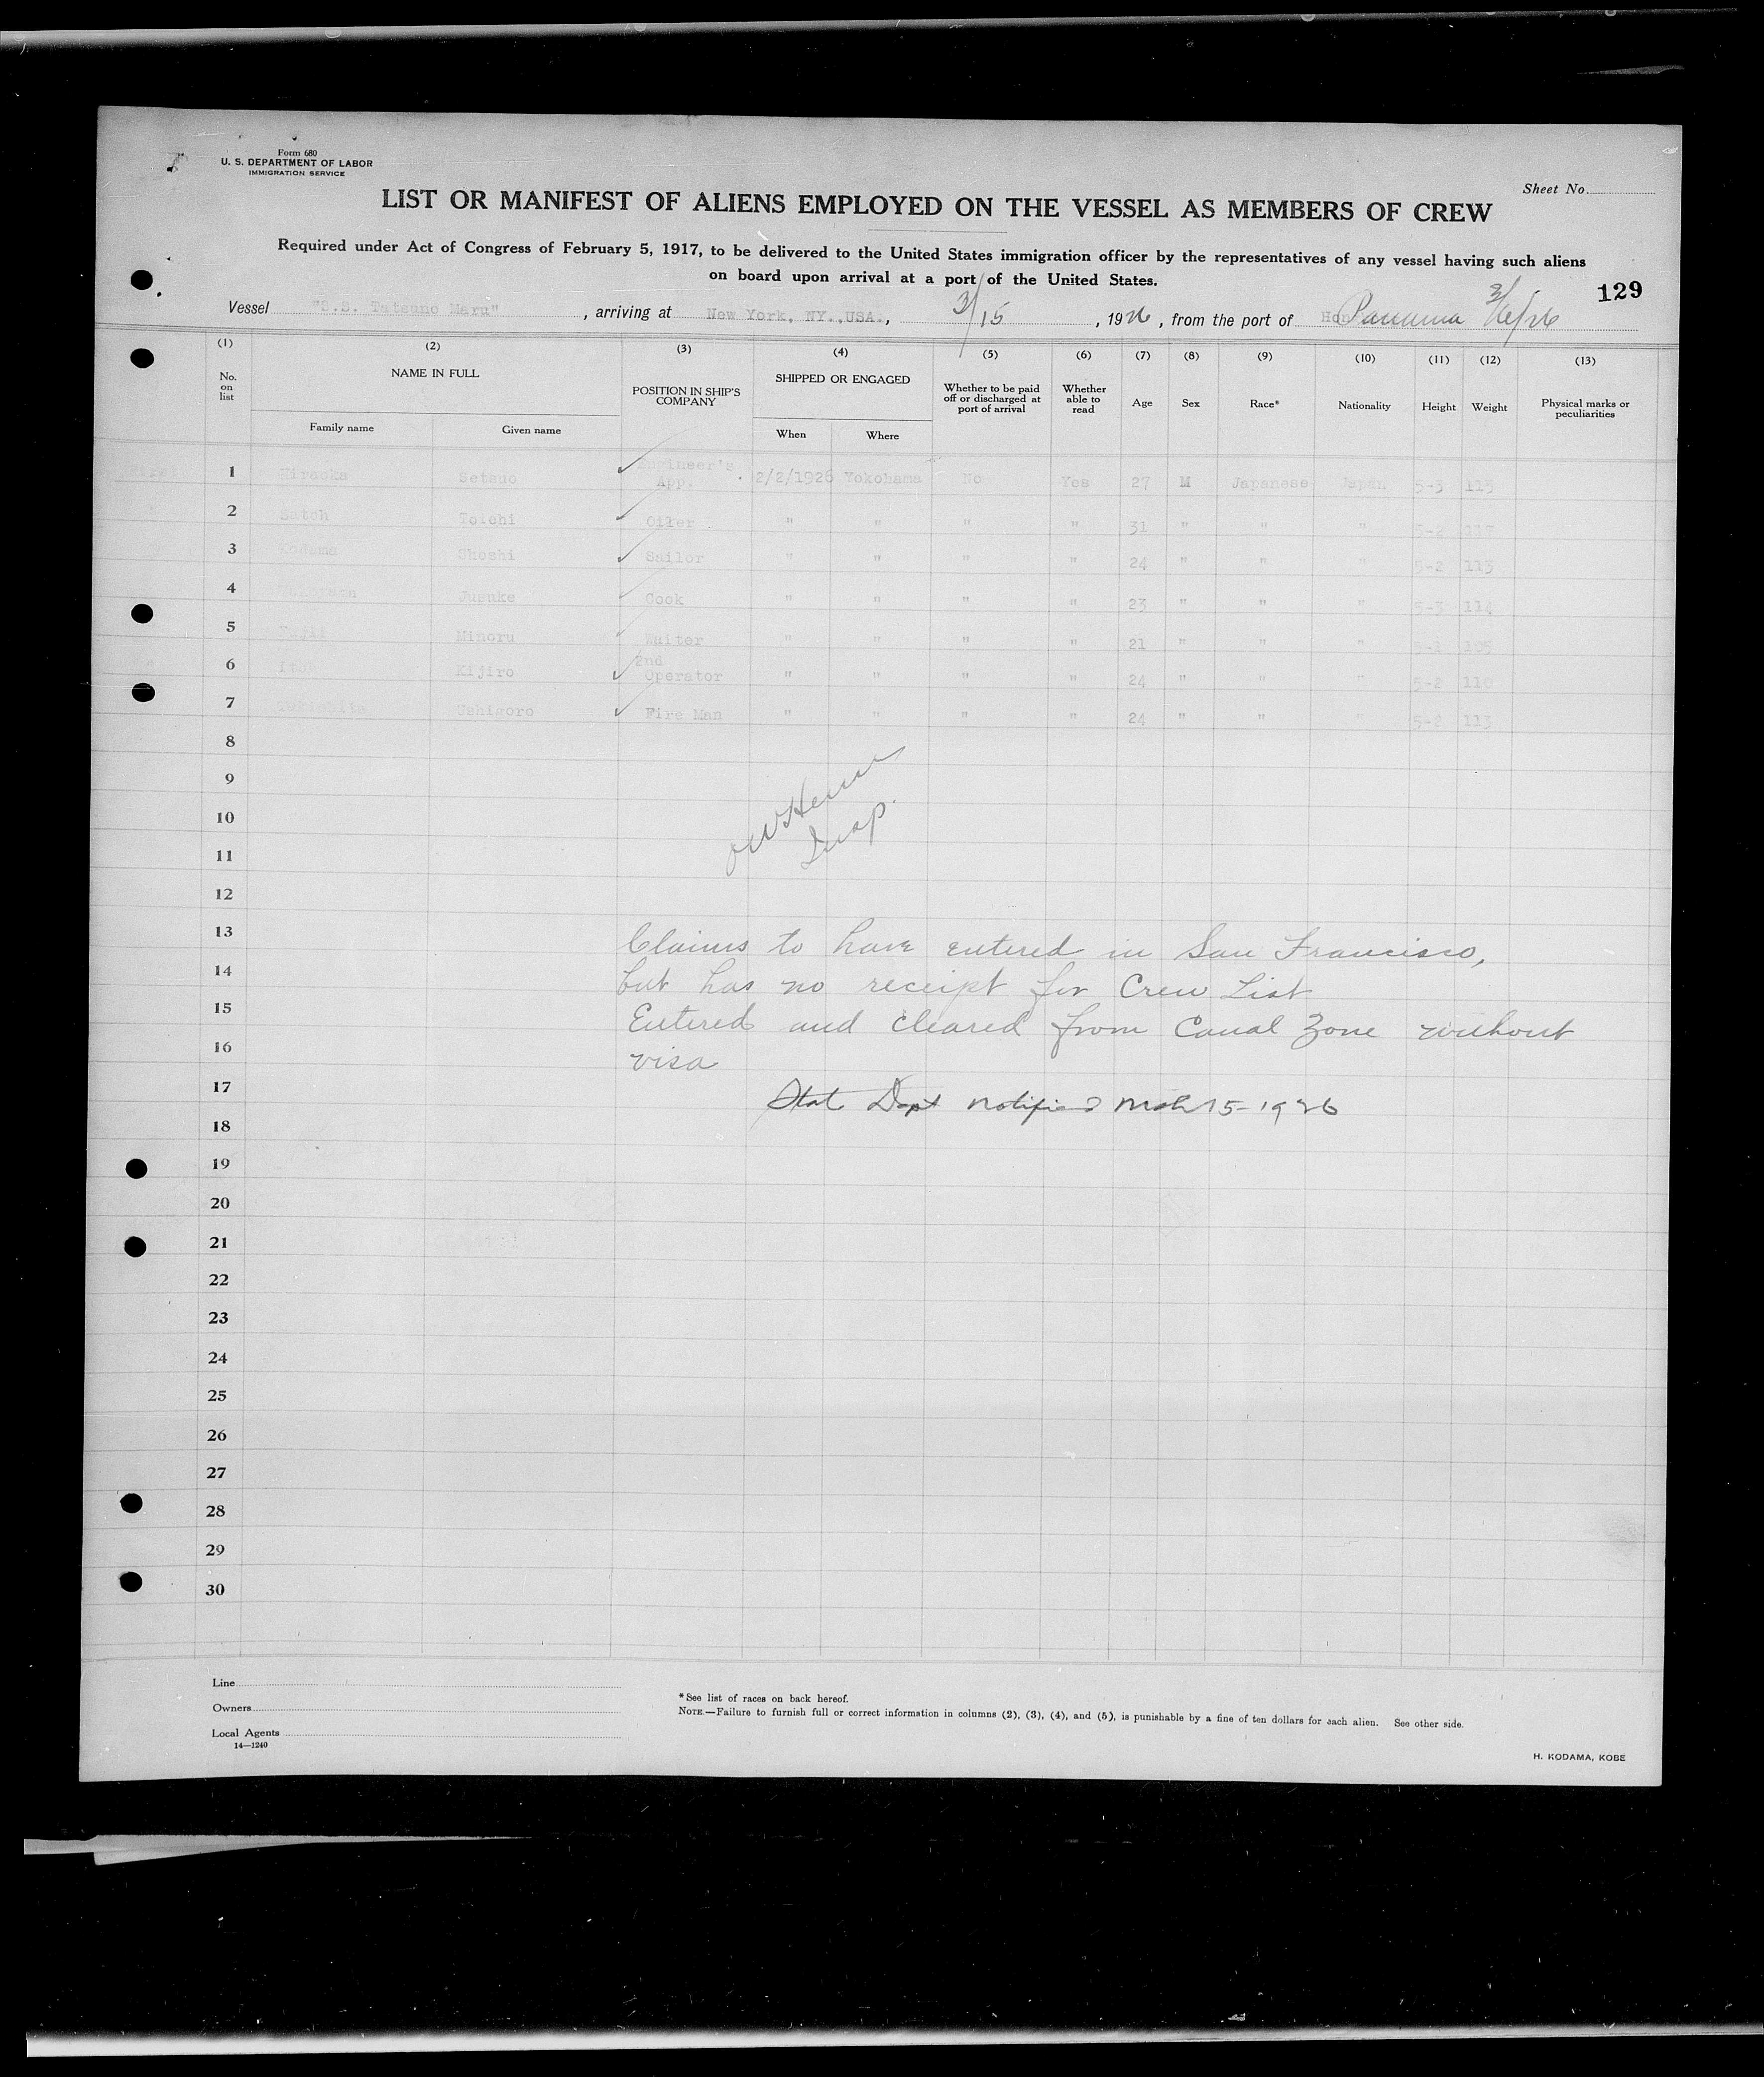 Form 680
U. S. DEPARTMENT OF LABOR
IMMIGRATION SERVICE
Sheet No.
LIST OR MANIFEST OF ALIENS EMPLOYED ON THE VESSEL AS MEMBERS OF CREW
Required under Act of Congress of February 5, 1917, to be delivered to the United States immigration officer by the representatives of any vessel having such aliens
on board upon arrival at a port of the United States.
129
Vessel "S.S. Tatsuno Maru", arriving at New York, NY.,USA., 3/15, 1926, from the port of Panama 3/6/26
(1) (2) (3) (4) (5) (6) (7) (8) (9) (10) (11) (12) (13)
No. on list NAME IN FULL POSITION IN SHIP'S COMPANY SHIPPED OR ENGAGED Whether to be paid off or discharged at port of arrival Whether able to read Age Sex Race* Nationality Height Weight Physical marks or peculiarities
Family name Given name When Where
1 Hiraoka Setsuo Engineer's App. 2/2/1926 Yokohama No Yes 27 M Japanese Japan 5-3 115
2 Satoh Toichi Oiler " " " " 31 " " " 5-2 117
3 Kodama Shoshi Sailor " " " " 24 " " " 5-2 113
4 Jusuke Cook " " " " 23 " " " 5-3 114
5 Fujii Minoru Waiter " " " " 21 " " " 5-1 105
6 Kijiro 2nd Operator " " " " 24 " " " 5-2 110
7 Ushigoro Fire Man " " " " 24 " " " 5-2 113
8
9
10
Insp.
11
12
13
Claims to have entered in San Francisco,
14
but has no receipt for Crew List
15
Entered and cleared from Canal Zone without
16
visa
17
State Dept notified Mch 15-1926
18
19
20
21
22
23
24
25
26
27
28
29
30
Line
Owners
Local Agents
14—1240
*See list of races on back hereof.
NOTE.—Failure to furnish full or correct information in columns (2), (3), (4), and (5), is punishable by a fine of ten dollars for each alien. See other side.
H. KODAMA, KOBE